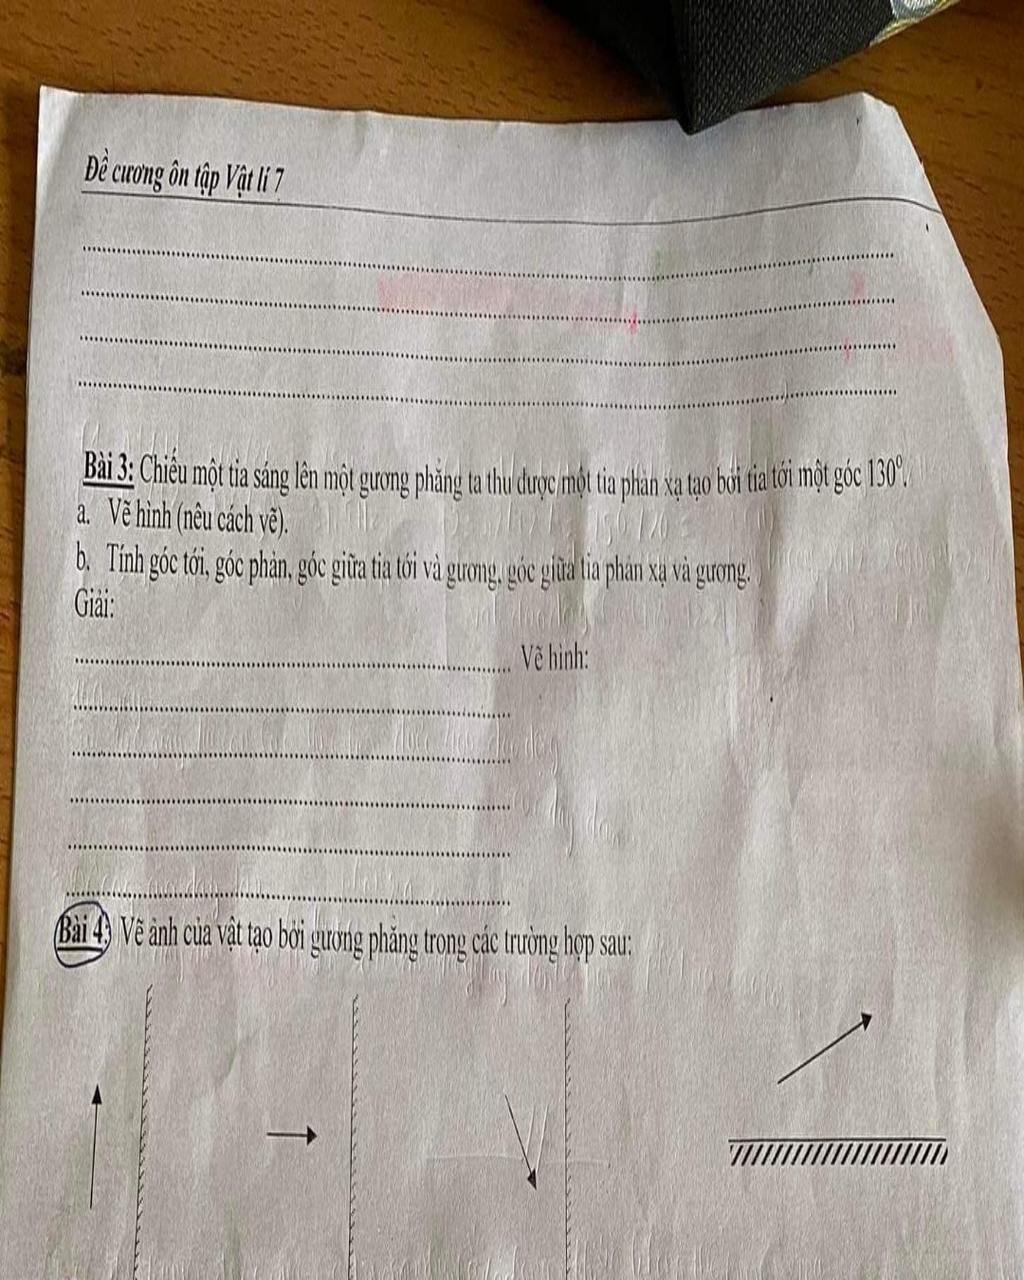 Đề cương ôn tập Vật lí 7
Bài 3: Chiếu một tia sáng lên một gương phẳng ta thu được một tia phản xạ tạo bởi tia tới một góc 130⁰.
a. Vẽ hình (nêu cách vẽ).
b. Tính góc tới, góc phản, góc giữa tia tới và gương, góc giữa tia phản xạ và gương.
Giải:
Vẽ hình:
Bài 4: Vẽ ảnh của vật tạo bởi gương phẳng trong các trường hợp sau: